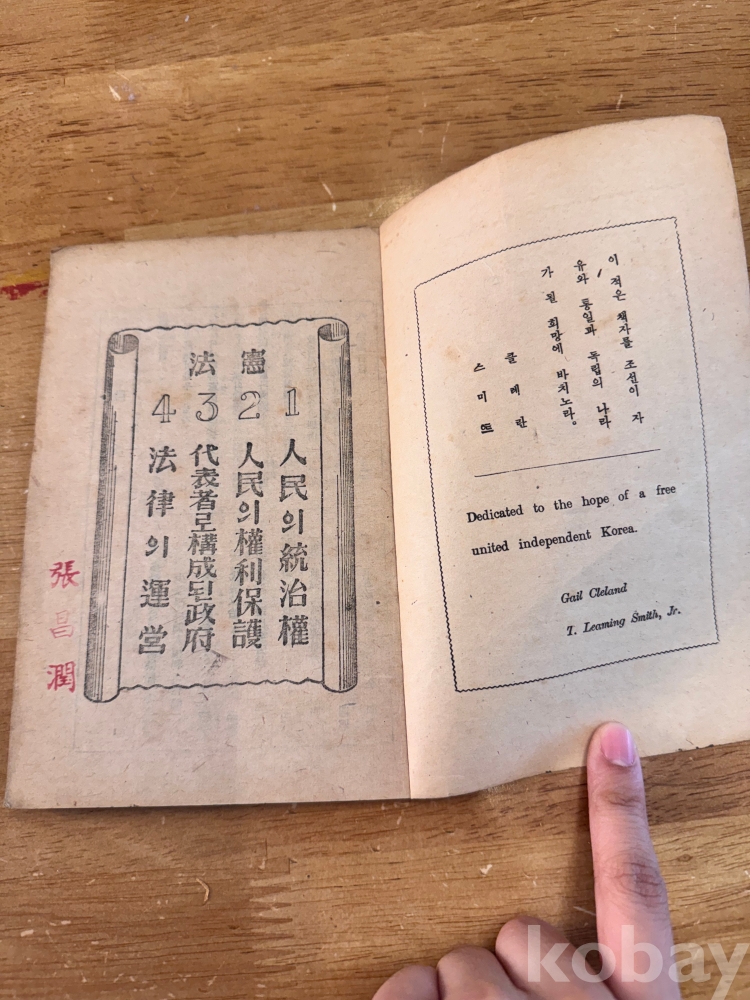 憲法
1 人民의統治權
2 人民의權利保護
3 代表者로構成된政府
4 法律의運営
張昌潤
이 적은 책자를 조선이 자
유와 통일과 독립의 나라
가 될 희망에 바치노라。
클레란
스미트
Dedicated to the hope of a free
united independent Korea.
Gail Cleland
T. Leaming Smith, Jr.
kobay